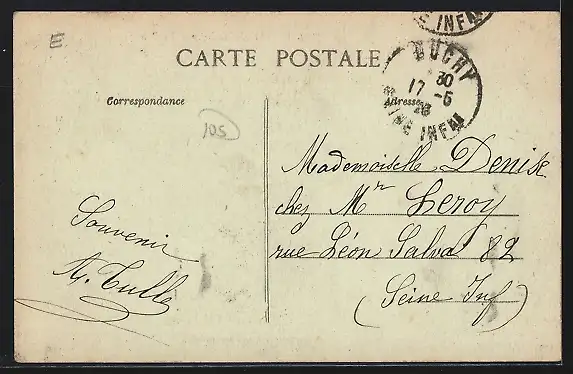 E
CARTE POSTALE
Correspondance
Adresse
INFRE
BUCHY
30
17-5
28
SEINE INFRE
105
Mademoiselle Denise
chez Mr Leroy
rue Léon Salva 82
(Seine Inf)
Souvenir